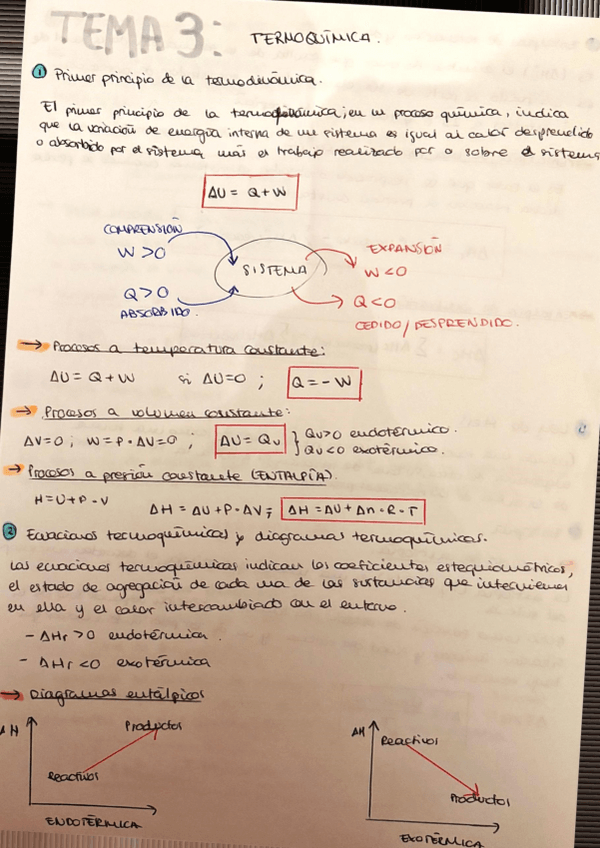 TEMA 3:
TERMOQUÍMICA.
① Primer principio de la termodinámica.
El primer principio de la termodinámica, en un proceso químico, indica
que la variación de energía interna de un sistema es igual al calor desprendido
o absorbido por el sistema más el trabajo realizado por o sobre el sistema
ΔU = Q + W
COMPRENSIÓN
W > 0
Q > 0
ABSORBIDO.
SISTEMA
EXPANSIÓN
W < 0
Q < 0
CEDIDO / DESPRENDIDO.
→ Procesos a temperatura constante:
ΔU = Q + W si ΔU = 0 ; Q = - W
→ Procesos a volumen constante:
ΔV = 0 ; W = P · ΔV = 0 ; ΔU = Qv } Qv > 0 endotérmico.
Qv < 0 exotérmico.
→ Procesos a presión constante (ENTALPÍA).
H = U + P · V ΔH = ΔU + P · ΔV ; ΔH = ΔU + Δn · R · T
② Ecuaciones termoquímicas y diagramas termoquímicos.
Las ecuaciones termoquímicas indican los coeficientes estequiométricos,
el estado de agregación de cada una de las sustancias que intervienen
en ella y el calor intercambiado con el entorno.
- ΔHr > 0 endotérmica.
- ΔHr < 0 exotérmica
→ Diagramas entálpicos
ΔH
Productos
Reactivos
ENDOTÉRMICA
ΔH
Reactivos
Productos
EXOTÉRMICA